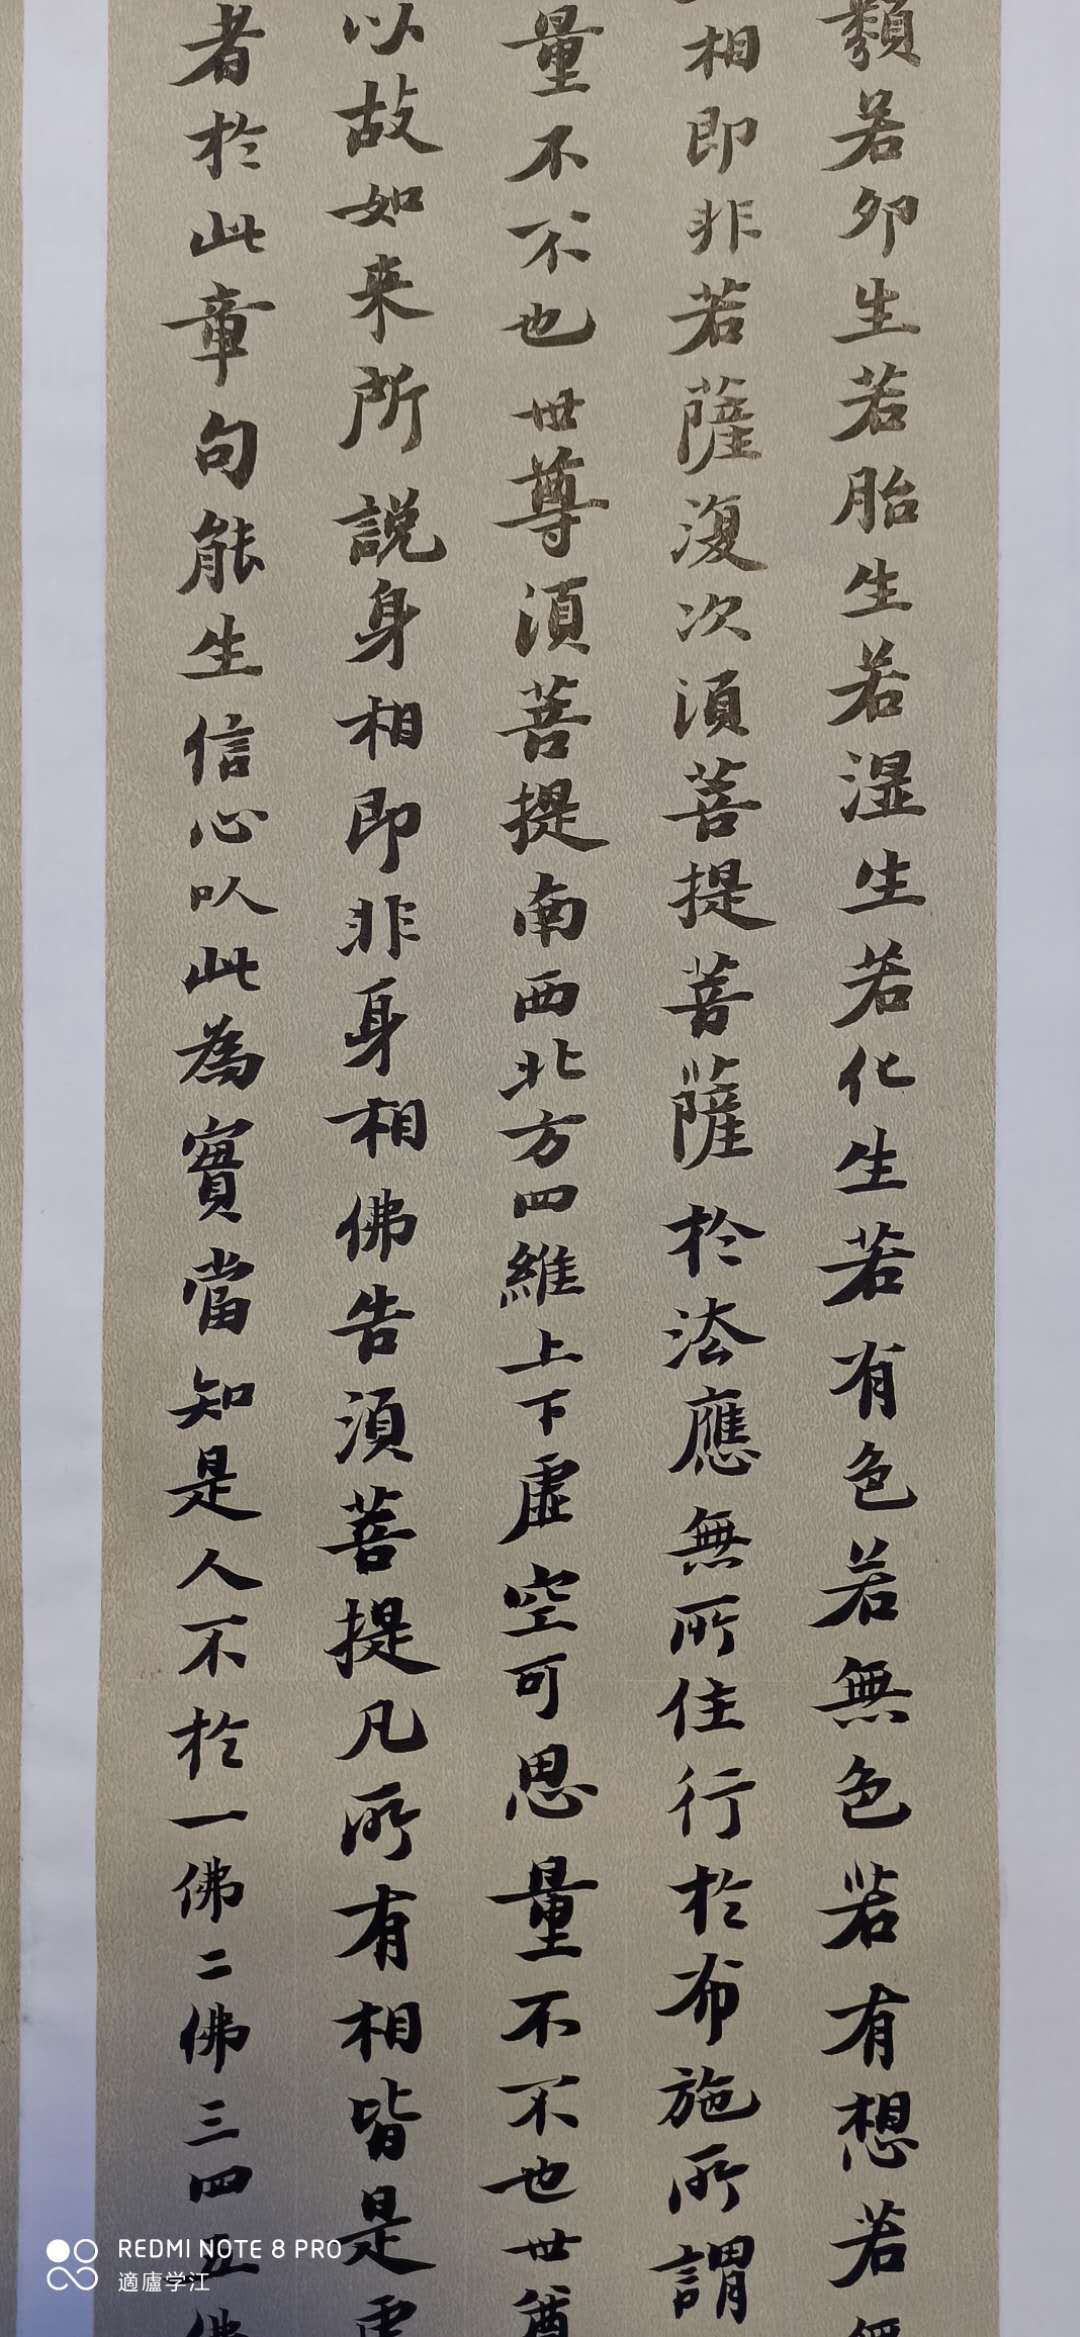 類若卵生若胎生若湿生若化生若有色若無色若有想若無
相即非菩薩復次須菩提菩薩於法應無所住行於布施所謂
量不不也世尊須菩提南西北方四維上下虛空可思量不不也世尊
以故如来所説身相即非身相佛告須菩提凡所有相皆是虛
者於此章句能生信心以此為實當知是人不於一佛二佛三四五佛
REDMI NOTE 8 PRO
適廬学江